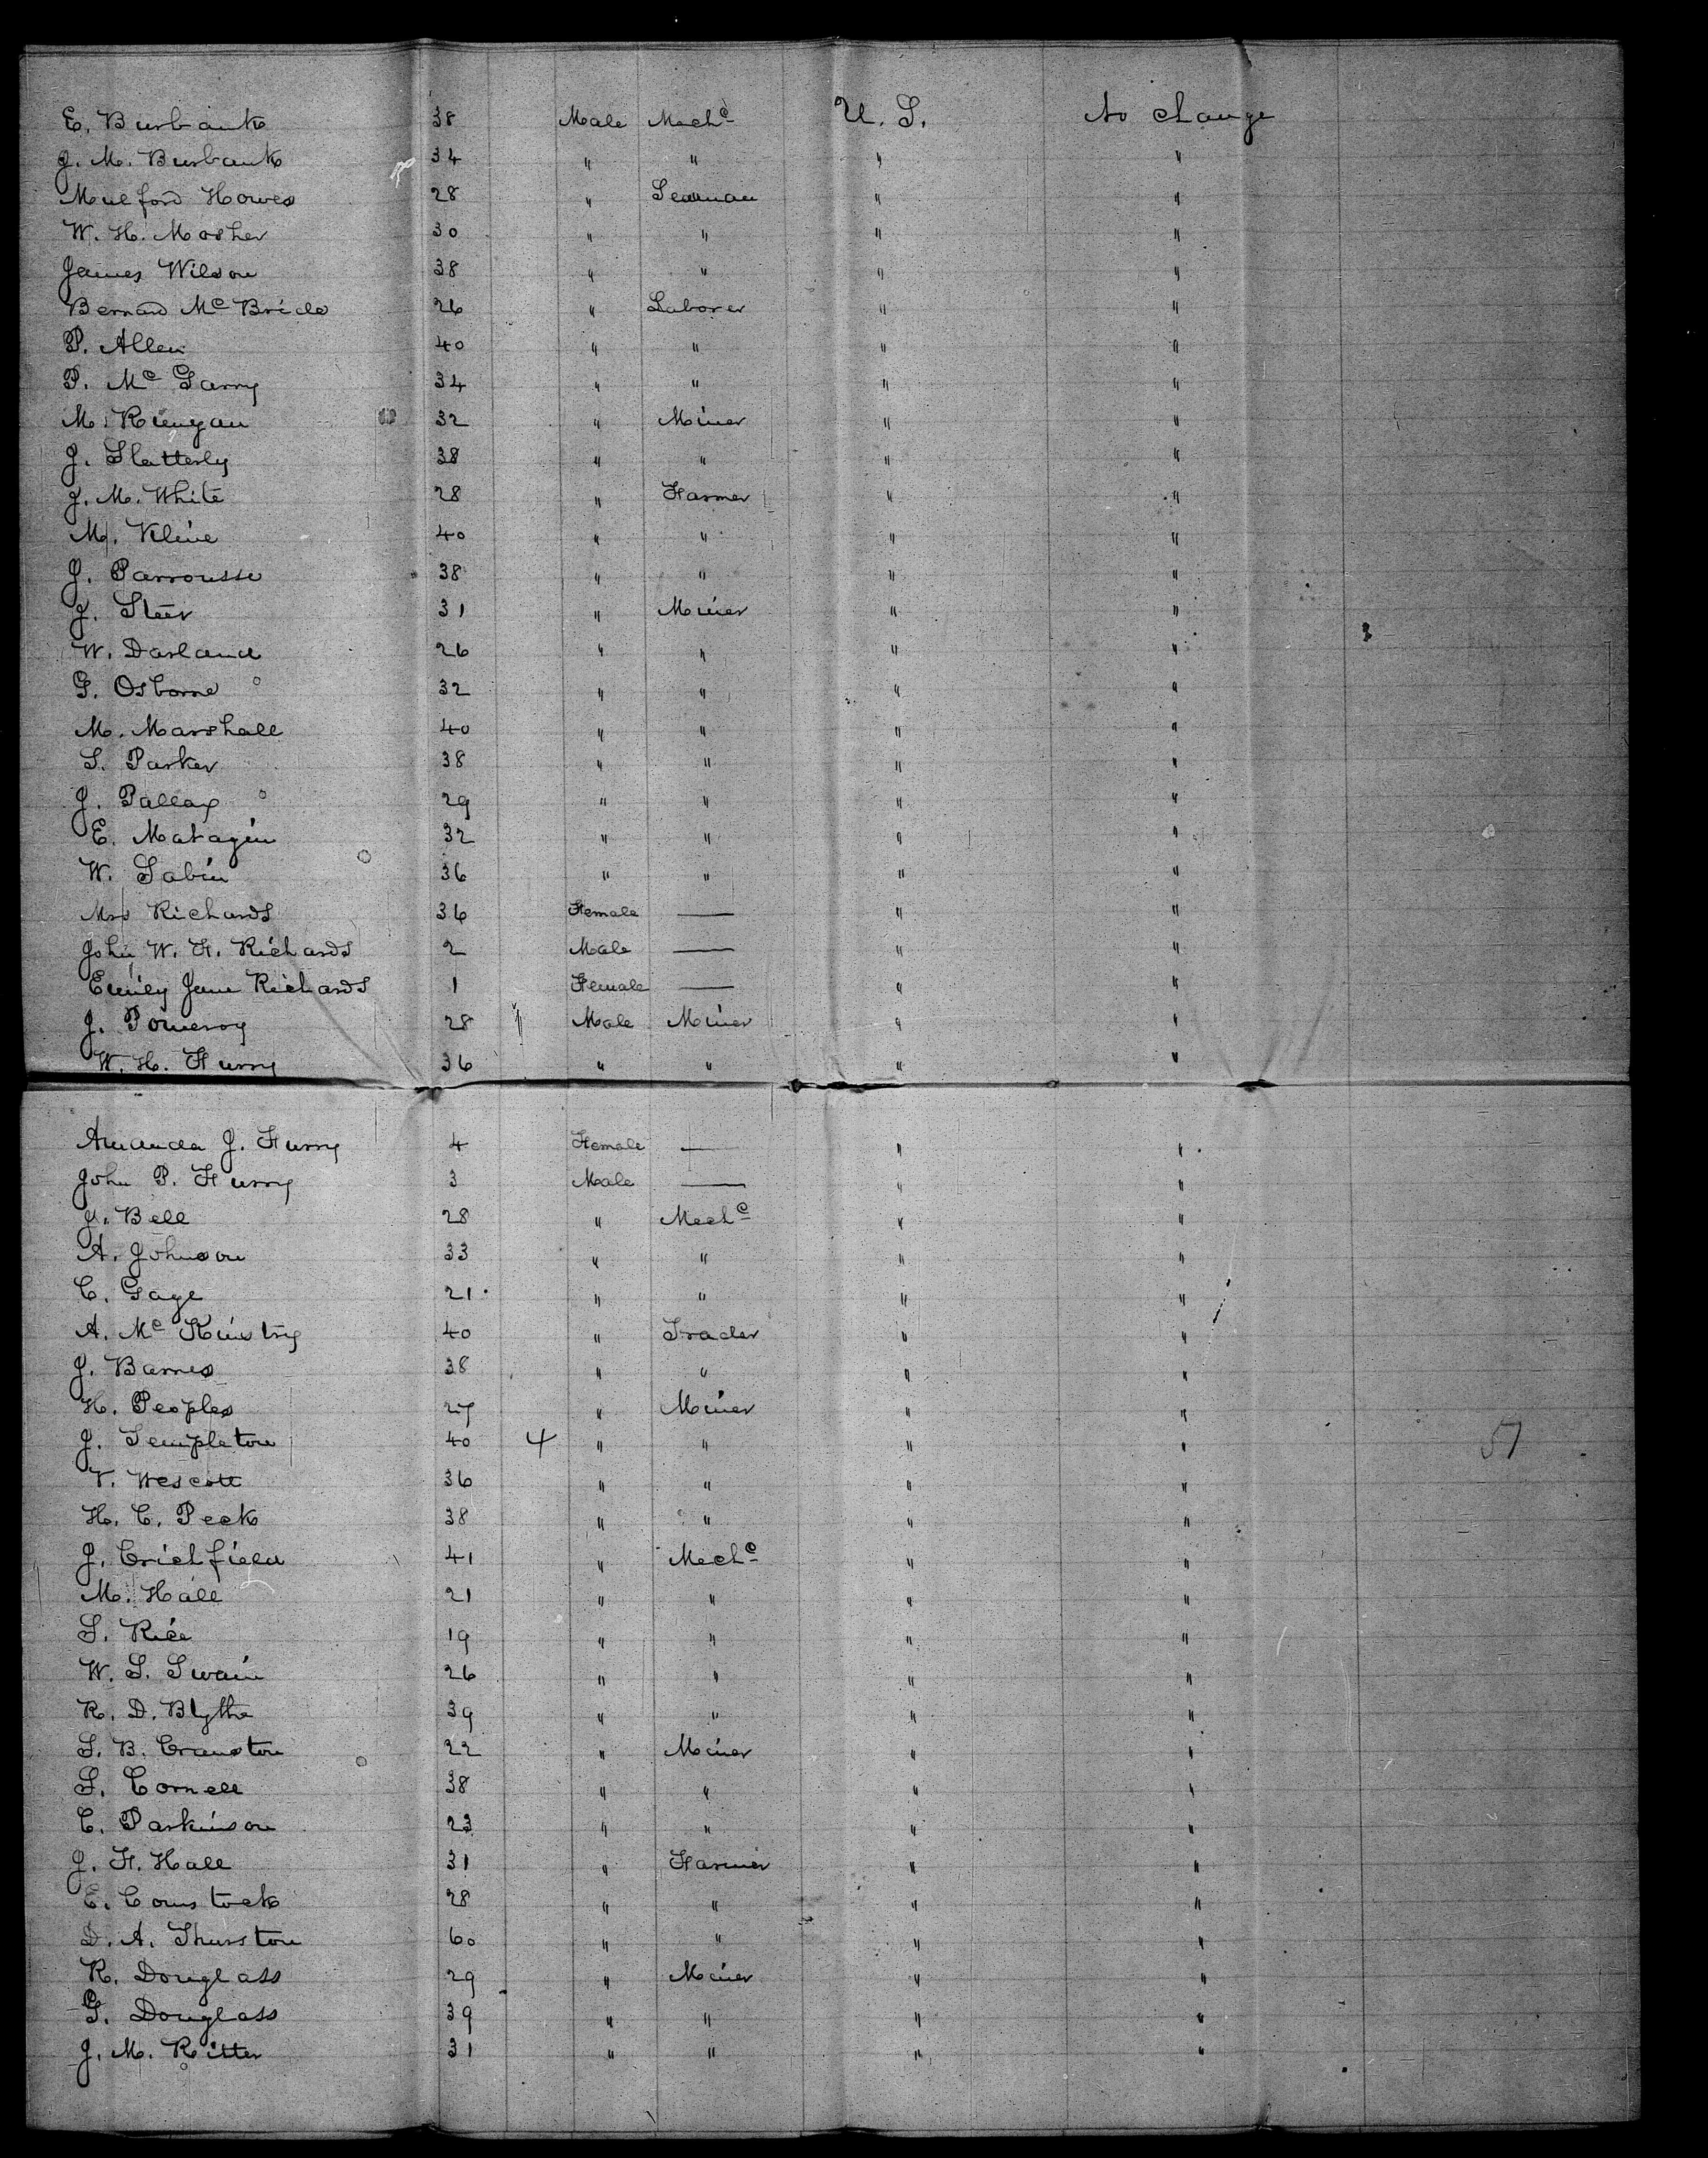 E. Burbank 38 Male Mech^c U. S. No change
J. M. Burbank 34 " " " "
Mulford Howes 28 " Seaman " "
W. H. Mosher 30 " " " "
James Wilson 38 " " " "
Bernard Mc Bride 26 " Laborer " "
P. Allen 40 " " " "
P. Mc Garry 34 " " " "
M. 32 " Miner " "
J. Slatterly 38 " " " "
J. M. White 28 " Farmer " "
M. Kline 40 " " " "
J. Parrousse 38 " " " "
J. Steer 31 " Miner " "
W. Darland 26 " " " "
G. Osborne 32 " " " "
M. Marshall 40 " " " "
S. Parker 38 " " " "
J. 29 " " " "
E. Matagin 32 " " " "
W. Sabin 36 " " " "
Mrs Richards 36 Female — " "
John W. F. Richards 2 Male — " "
Emily Jane Richards 1 Female — " "
J. Pomeroy 28 Male Miner " "
W. H. Furry 36 " " " "
Amanda J. Furry 4 Female — " "
John P. Furry 3 Male — " "
J. Bell 28 " Mech^c " "
A. Johnson 33 " " " "
C. Gage 21 " " " "
A. Mc Kinstry 40 " Trader " "
J. Barnes 38 " " " "
H. Peoples 27 " Miner " "
J. Templeton 40 4 " " " " 57
V. Wescott 36 " " " "
H. C. Peck 38 " " " "
J. Crichfield 41 " Mech^c " "
M. Hall 21 " " " "
S. Rice 19 " " " "
W. S. Swain 26 " " " "
R. D. Blythe 39 " " " "
S. B. Cranston 22 " Miner " "
S. Cornell 38 " " " "
C. Parkinson 23 " " " "
J. F. Hall 31 " Farmer " "
E. Comstock 28 " " " "
D. A. Thurston 60 " " " "
R. Douglass 29 " Miner " "
G. Douglass 39 " " " "
J. M. Ritter 31 " " " "